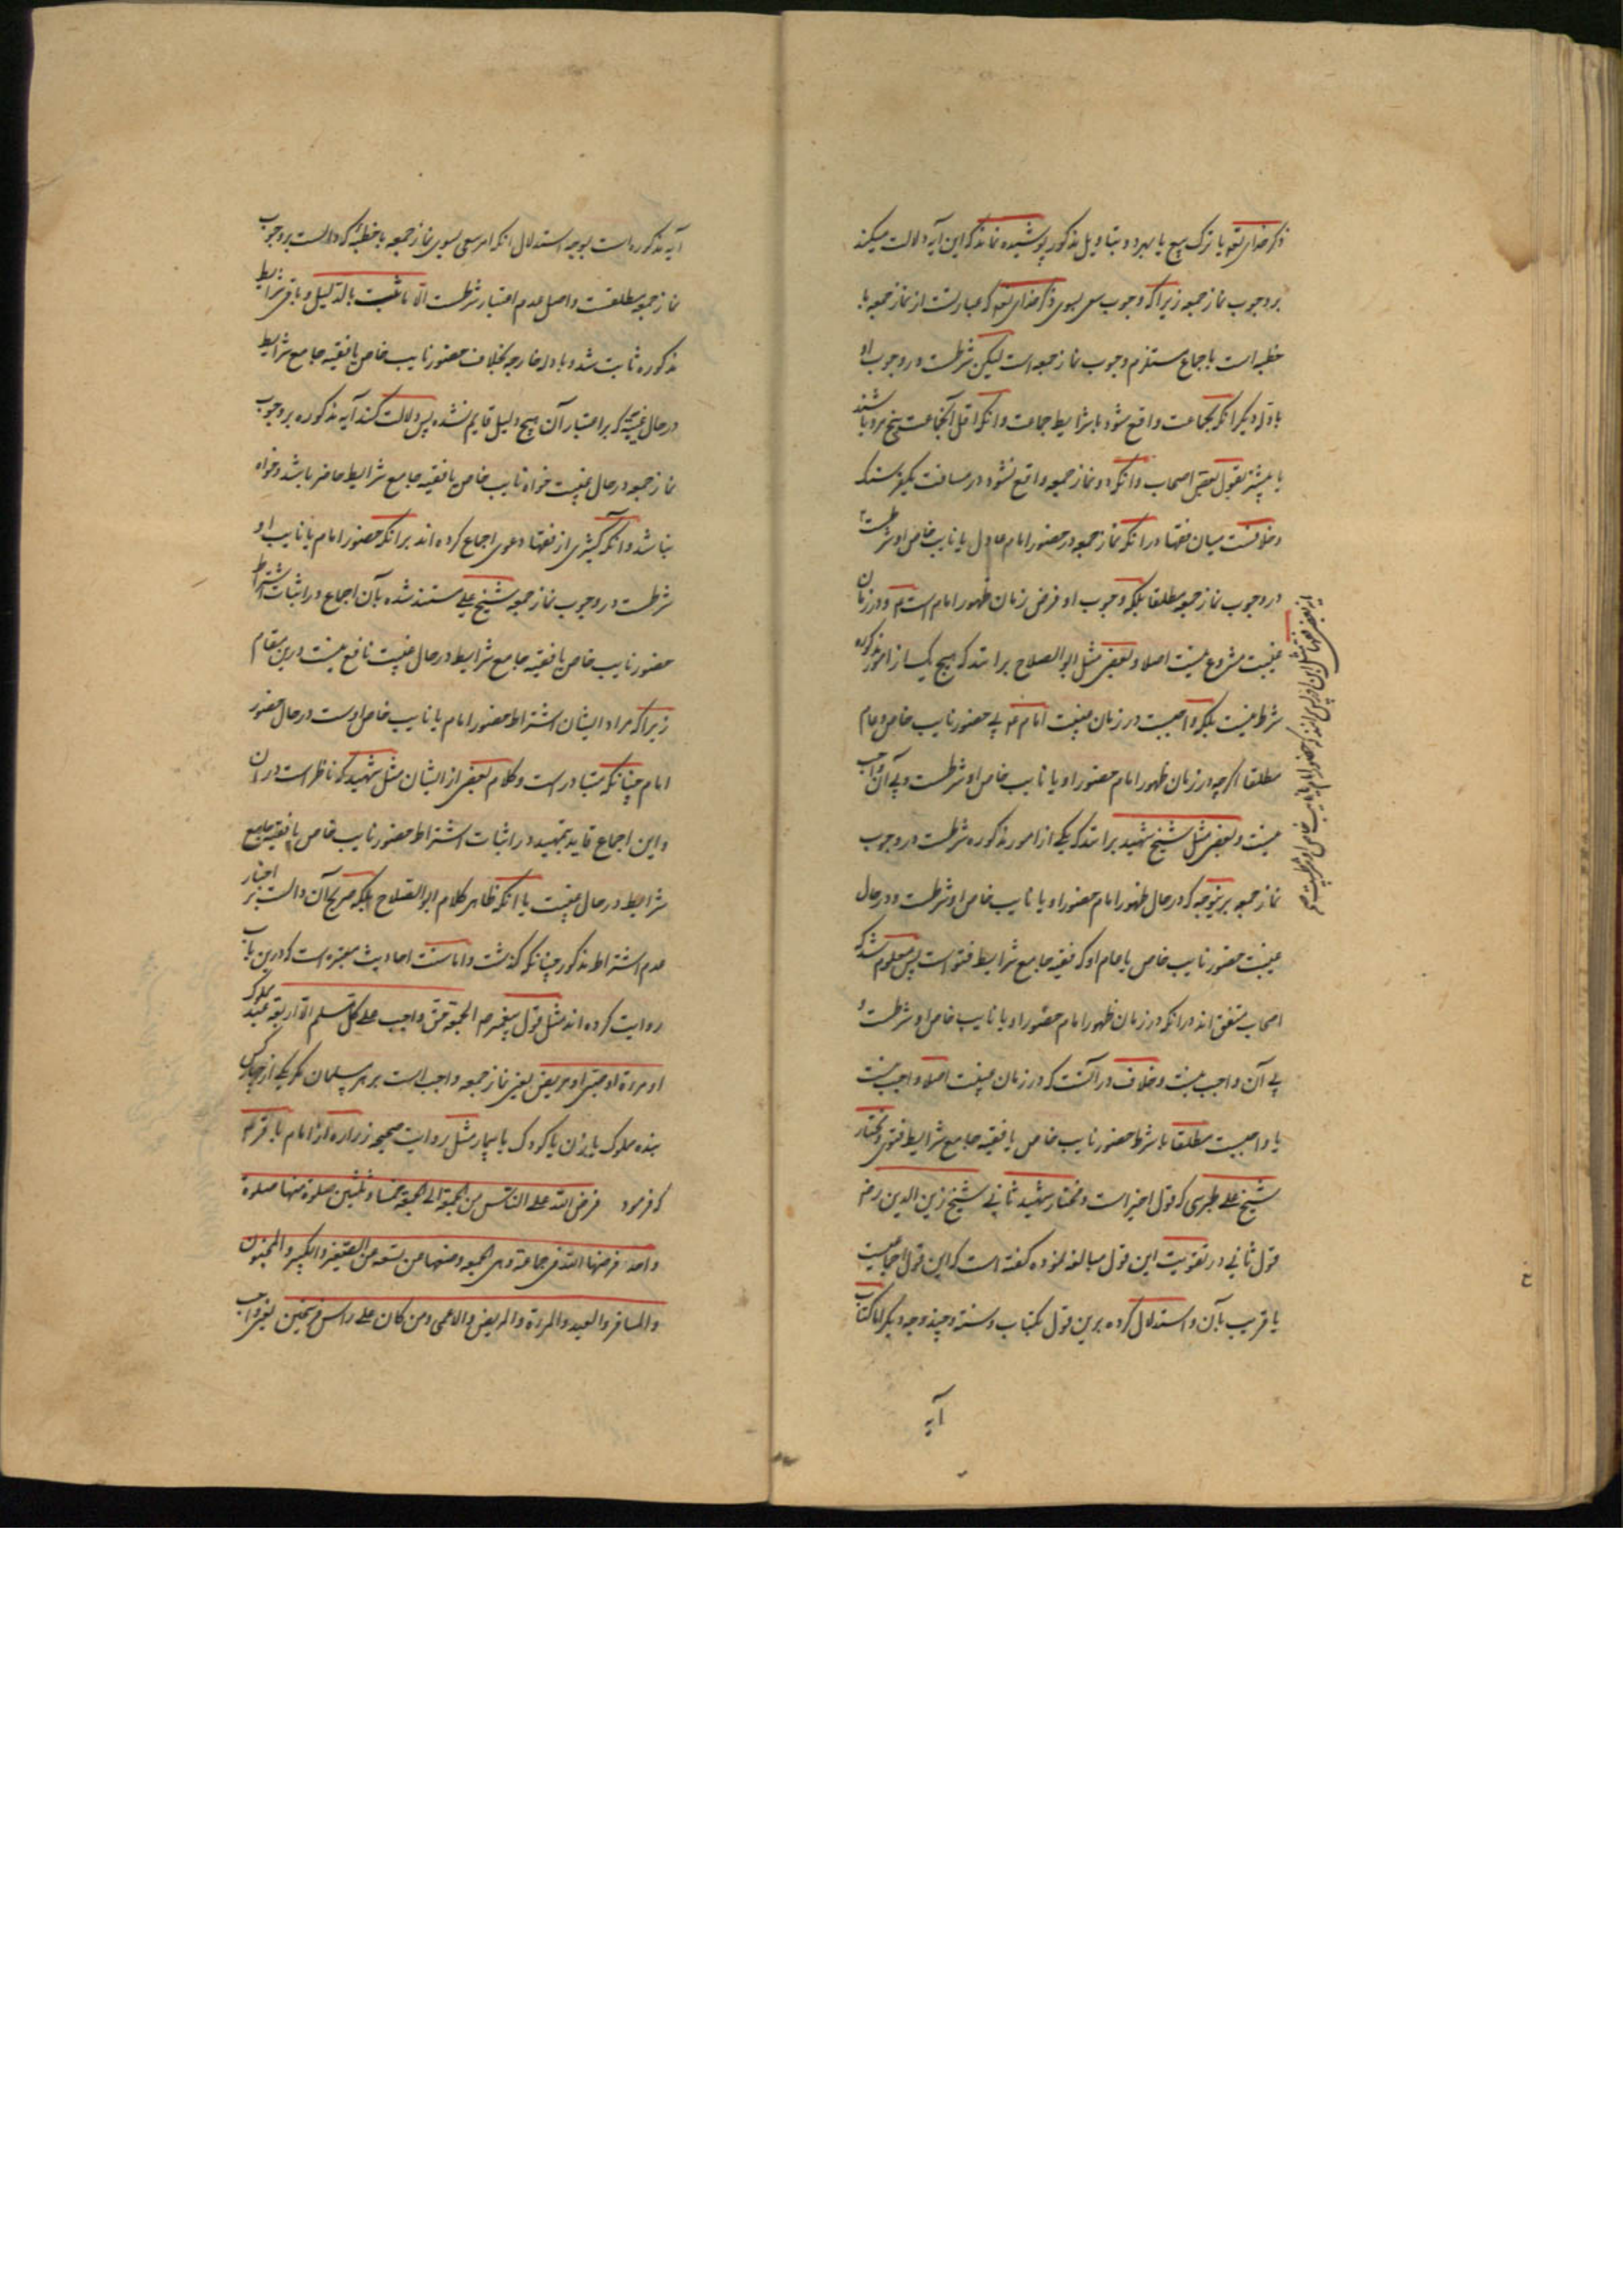 ذکر خدای تعالی با ترک بیع یا بهر دو بتاویل مذکور پوشیده نماند که این آیه دلالت میکند
بر وجوب نماز جمعه زیرا که وجوب سعی بسوی ذکر خدای تعالی که عبارتست از نماز جمعه با
خطبه است باجماع مستلزم وجوب نماز جمعه است لیکن شرطست در وجوب او
بادله دیگر انکه بجماعت واقع شود با شرایط جماعت و انکه اقل آنجماعت پنج مرد باشند
یا بیشتر بقول بعضی اصحاب و انکه دو نماز جمعه واقع نشود در مسافت یکفرسنک
و خلافست میان فقها در انکه نماز جمعه در حضور امام عادل یا نایب خاص او شرطست
در وجوب نماز جمعه مطلقا بلکه وجوب او فرض زمان ظهور امام است ع م و در زمان
غیبت مشروع نیست اصلا و بعضی مثل ابو الصلاح برانند که هیچ یک از امور مذکوره
شرط نیست بلکه واجبست در زمان غیبت امام ع م بی حضور نایب خاص و عام
مطلقا اکرچه در زمان ظهور امام حضور او یا نایب خاص او شرطست و بی آن واجب
نیست و بعضی مثل شیخ شهید برانند که یکی از امور مذکوره شرطست در وجوب
نماز جمعه برینوجه که در حال ظهور امام حضور او یا نایب خاص او شرطست و در حال
غیبت حضور نایب خاص یا عام او که فقیه جامع شرایط فتوی است پس معلوم شد که
اصحاب متفق اند در انکه در زمان ظهور امام حضور او یا نایب خاص او شرطست و
بی آن واجب نیست و خلاف در آنست که در زمان غیبت اصلا واجب نیست
یا واجبست مطلقا یا شرط حضور نایب خاص یا فقیه جامع شرایط فتوی و مختار
شیخ علی طبرسی که قول اخیر است و مختار شهید ثانی شیخ زین الدین رض
قول ثانی و در تقویت این قول مبالغه نموده کفته است که این قول اجماعیست
یا قریب بآن و استدلال کرده برین قول بکتاب و سنة و چند وجه دیکر اما کتاب
آیه
آیه مذکوره است بوجه استدلال انکه امر سعی بسوی نماز جمعه با خطبه که دالست بر وجوب
نماز جمعه مطلقست و اصل عدم اعتبار شرطست الا ما ثبت بالدلیل و باقی شرایط
مذکوره ثابت شد و بادله خارجه بخلاف حضور نایب خاص یا فقیه جامع شرایط
در حال غیبت که بر اعتبار آن هیچ دلیل قایم نشده پس دلالت کند آیه مذکوره بر وجوب
نماز جمعه در حال غیبت خواه نایب خاص یا فقیه جامع شرایط حاضر باشد و خواه
نباشد و انکه کثیری از فقها دعوی اجماع کرده اند بر انکه حضور امام یا نایب او
شرطست در وجوب نماز جمعه شیخ علی مستند شده بآن اجماع در اثبات اشتراط
حضور نایب خاص یا فقیه جامع شرایط در حال غیبت نافع نیست درین مقام
زیرا که مراد ایشان اشتراط حضور امام یا نایب خاص اوست در حال حضور
امام چنانکه متبادر است و کلام بعضی از ایشان مثل شهید که ناظر است در ان
و این اجماع در اثبات اشتراط حضور نایب خاص یا فقیه جامع
شرایط در حال غیبت با انکه ظاهر کلام ابو الصلاح بلکه صریح آن دالست بر اختیار
عدم اشتراط مذکور چنانکه کذشت و اما سنت احادیث معتبره است که درین باب
روایت کرده اند مثل قول پیغمبر ص الجمعة حق واجب علی کل مسلم الا اربعة عبد مملوک
او مرءة او صبی او مریض یعنی نماز جمعه واجب است بر هر مسلمان مکر یکی از چهار کس
بنده مملوک یا زن یا کودک یا بیمار و مثل روایت صحیحه زراره از امام باقر ع م
که فرمود فرض الله علی الناس من الجمعة الی الجمعة خمسا و ثلثین صلوة منها صلوة
واحدة فرضها الله فی جماعة و هی الجمعه و وضعها عن تسعة عن الصغیر و الکبیر و المجنون
و المسافر و العبد و المرءة و المریض و الاعمی و من کان علی راس فرسخین یعنی واجب